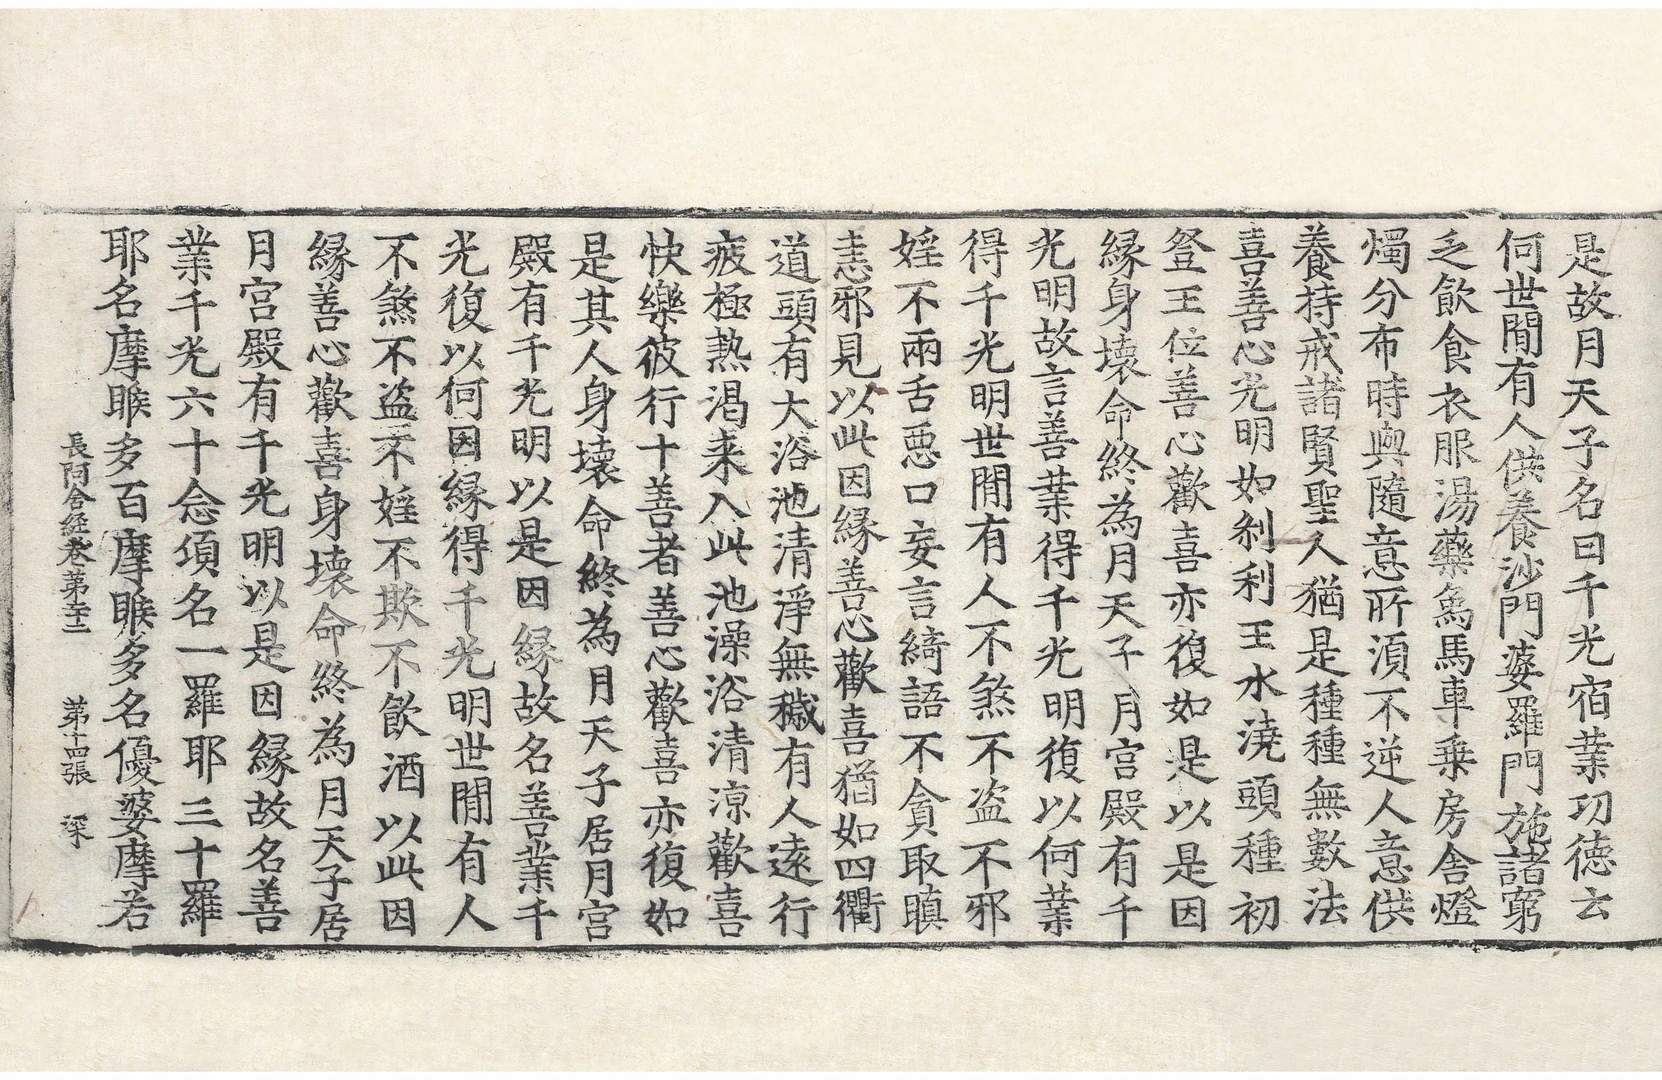 是故月天子名曰千光宿業功德云
何世間有人供養沙門婆羅門施諸窮
乏飲食衣服湯藥象馬車乗房舎燈
燭分布時與隨意所湏不逆人意供
養持戒諸賢聖人猶是種種無數法
喜善心光明如剎利王水澆頭種初
登王位善心歡喜亦復如是以是因
緣身壞命終為月天子月宮殿有千
光明故言善業得千光明復以何業
得千光明世間有人不煞不盗不邪
婬不兩舌惡口妄言綺語不貪取瞋
恚邪見以此因緣善心歡喜猶如四衢
道頭有大浴池清淨無穢有人遠行
疲極熱渴来入此池澡浴清涼歡喜
快樂彼行十善者善心歡喜亦復如
是其人身壞命終為月天子居月宮
殿有千光明以是因緣故名善業千
光復以何因緣得千光明世間有人
不煞不盗不婬不欺不飲酒以此因
緣善心歡喜身壞命終為月天子居
月宮殿有千光明以是因緣故名善
業千光六十念湏名一羅耶三十羅
耶名摩睺多百摩睺多名優婆摩若
長阿含經卷第二十二 第十四張 深